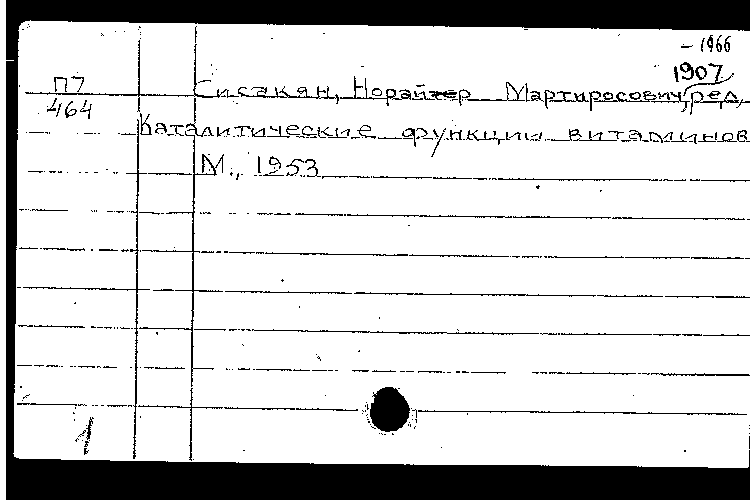 – 1966
1907
П7
464
Сисакян, Норайр Мартиросович, ред.
Каталитические функции витаминов
М., 1953
1